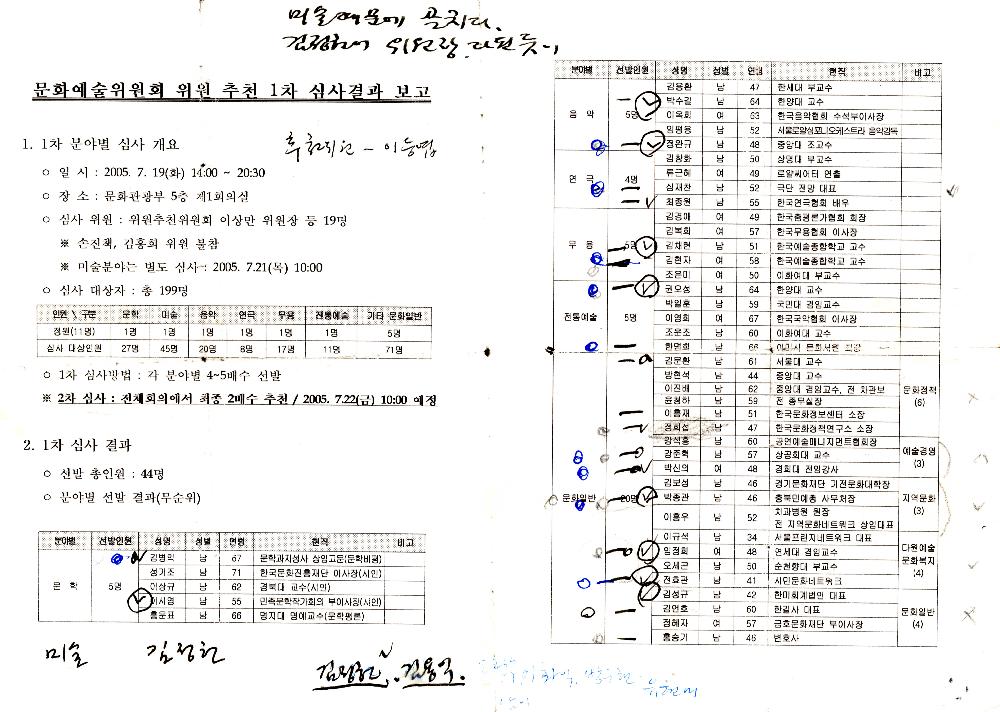 미술때문에 골치다.
문화예술위원회 위원 추천 1차 심사결과 보고
1. 1차 분야별 심사 개요
ㅇ 일 시 : 2005. 7. 19(화) 14:00 ~ 20:30
ㅇ 장 소 : 문화관광부 5층 제1회의실
ㅇ 심사 위원 : 위원추천위원회 이상만 위원장 등 19명
※ 손진책, 김홍희 위원 불참
※ 미술분야는 별도 심사 : 2005. 7.21(목) 10:00
ㅇ 심사 대상자 : 총 199명
인원 \ 구분 문학 미술 음악 연극 무용 전통예술 기타 문화일반
정원(11명) 1명 1명 1명 1명 1명 1명 5명
심사 대상인원 27명 45명 20명 8명 17명 11명 71명
ㅇ 1차 심사방법 : 각 분야별 4~5배수 선발
※ 2차 심사 : 전체회의에서 최종 2배수 추천 / 2005. 7.22(금) 10:00 예정
2. 1차 심사 결과
ㅇ 선발 총인원 : 44명
ㅇ 분야별 선발 결과(무순위)
분야별 선발인원 성명 성별 연령 현직 비고
문 학 5명
김병익 남 67 문학과지성사 상임고문(문학비평)
성기조 남 71 한국문화진흥재단 이사장(시인)
이상규 남 62 경북대 교수(시인)
이시영 남 55 민족문학작가회의 부이사장(시인)
홍문표 남 66 명지대 명예교수(문학평론)
미술 김정헌
김정헌, 김용익.
분야별 선발인원 성명 성별 연령 현직 비고
음 악 5명
김용환 남 47 한세대 부교수
박수길 남 64 한양대 교수
이옥희 여 63 한국음악협회 수석부이사장
임평용 남 52 서울로얄심포니오케스트라 음악감독
정완규 남 48 중앙대 조교수
연 극 4명
김창화 남 50 상명대 부교수
류근혜 여 49 로얄씨어터 연출
심재찬 남 52 극단 전망 대표
최종원 남 55 한국연극협회 배우
무 용 5명
김경애 여 49 한국춤평론가협회 회장
김복희 여 57 한국무용협회 이사장
김채현 남 51 한국예술종합학교 교수
김현자 여 58 한국예술종합학교 교수
조은미 여 50 이화여대 부교수
전통예술 5명
권오성 남 64 한양대 교수
박일훈 남 59 국민대 겸임교수
이영희 여 67 한국국악협회 이사장
조운조 남 60 이화여대 교수
한명희 남 66
문화일반 20명
김문환 남 61 서울대 교수
방현석 남 44 중앙대 교수
이진배 남 62 중앙대 겸임교수, 전 차관보
윤청하 남 59 전 종무실장
이흥재 남 51 한국문화정보센터 소장
정희섭 남 47 한국문화정책연구소 소장
문화정책 (6)
강석흥 남 60 공연예술매니지먼트협회장
강준혁 남 57 성공회대 교수
박신의 여 48 경희대 전임강사
예술경영 (3)
김보성 남 46 경기문화재단 기전문화대학장
박종관 남 46 충북민예총 사무처장
이홍우 남 52 치과병원 원장
전 지역문화네트워크 상임대표
지역문화 (3)
이규석 남 34 서울프린지네트워크 대표
임정희 여 48 연세대 겸임교수
오세곤 남 50 순천향대 부교수
전효관 남 41 시민문화네트워크
다원예술 문화복지 (4)
김성규 남 42 한미회계법인 대표
김언호 남 60 한길사 대표
정혜자 여 57 금호문화재단 부이사장
홍승기 남 46 변호사
문화일반 (4)